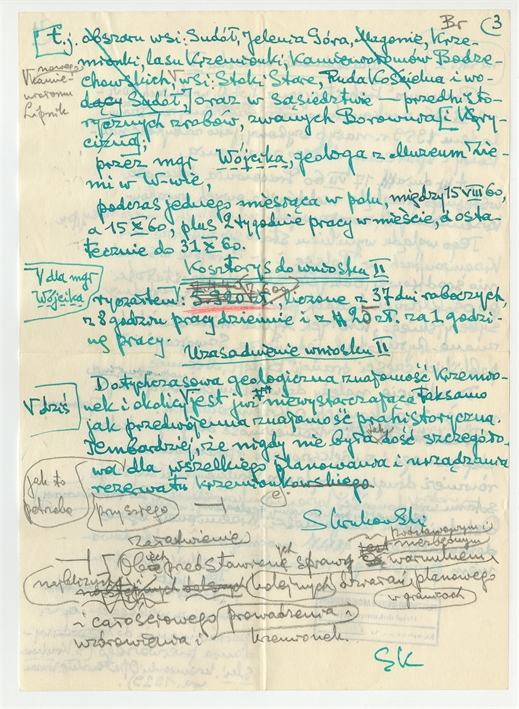 Br (3
[t.j. obszaru wsi: Sudół, Jelenia Góra, Magonie, Krze-
mionki, lasu Krzemionki, Kamieniołomów Bodze-
chowskich, wsi: Stoki Stare, Ruda Kościelna i wo-
dący Sudół,] oraz w sąsiedztwie — przedhisto-
rycznych zrębów, zwanych Borownia [i Kory-
cizna];
nowego
V kamie-
niołomu
Lipnik
przez mgr Wójcika, geologa z Muzeum Zie-
mi w W-wie,
podczas jednego miesiąca w polu, między 15 VIII 60,
a 15 X 60, plus 2 tygodnie pracy w mieście, dosta-
tecznie do 31 X 60.
Kosztorys do wniosku II
V dla mgr
Wójcika
ryczałtem: zł, liczone z 37 dni roboczych,
z 8 godzin pracy dziennie i z zł. za 1 godzi-
nę pracy.
Uzasadnienie wniosku II
V dziś
Dotychczasowa geologiczna znajomość Krzemio-
nek i okolicy jest już niewystarczająca tak samo
jak przedwojenna znajomość prahistoryczna.
Tembardziej, że nigdy nie była dość szczegóło-
wa dla wszelkiego planowania i urządzania
rezerwatu krzemionkowskiego.
jak to
potrzeba
przyszłego
S Krukowski
załatwienie
podstawowym i
niezbędnym
przedstawienie sprawy warunkiem
najbliższych kolejnych otwarań planowego
w granicach
i całościowego prowadzenia i
wzorowania i krzemionek.
SK